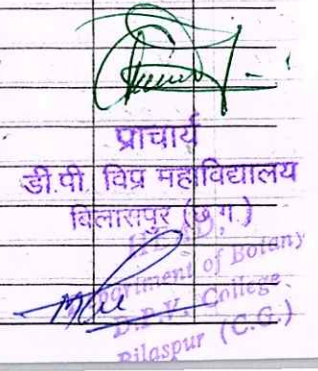 प्राचार्य
डी.पी. विप्र महाविद्यालय
बिलासपुर (छ.ग.)
HEAD,
Department of Botany
D.P.V. College
Bilaspur (C.G.)